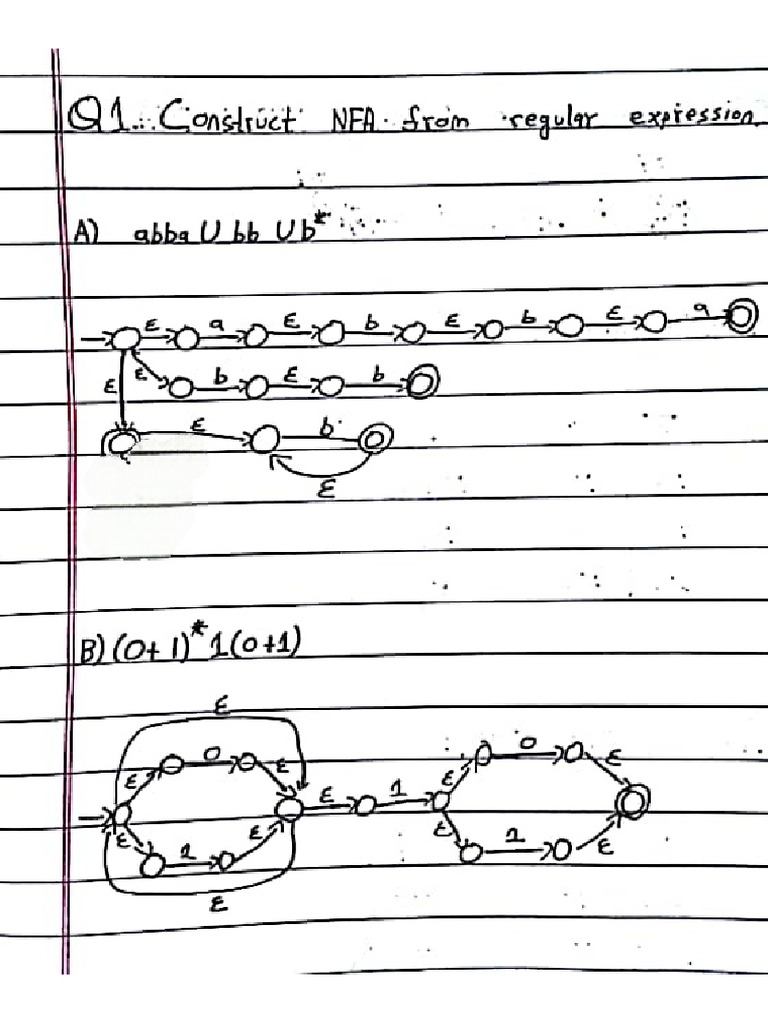 Q1. Construct NFA from regular expression.
A) abba U bb U b*
ε a ε b ε b ε a
ε ε b ε b
ε b
ε
B) (0+1)* 1(0+1)
ε
0 0
ε ε ε ε
ε 1
ε ε ε
1 1 ε
ε